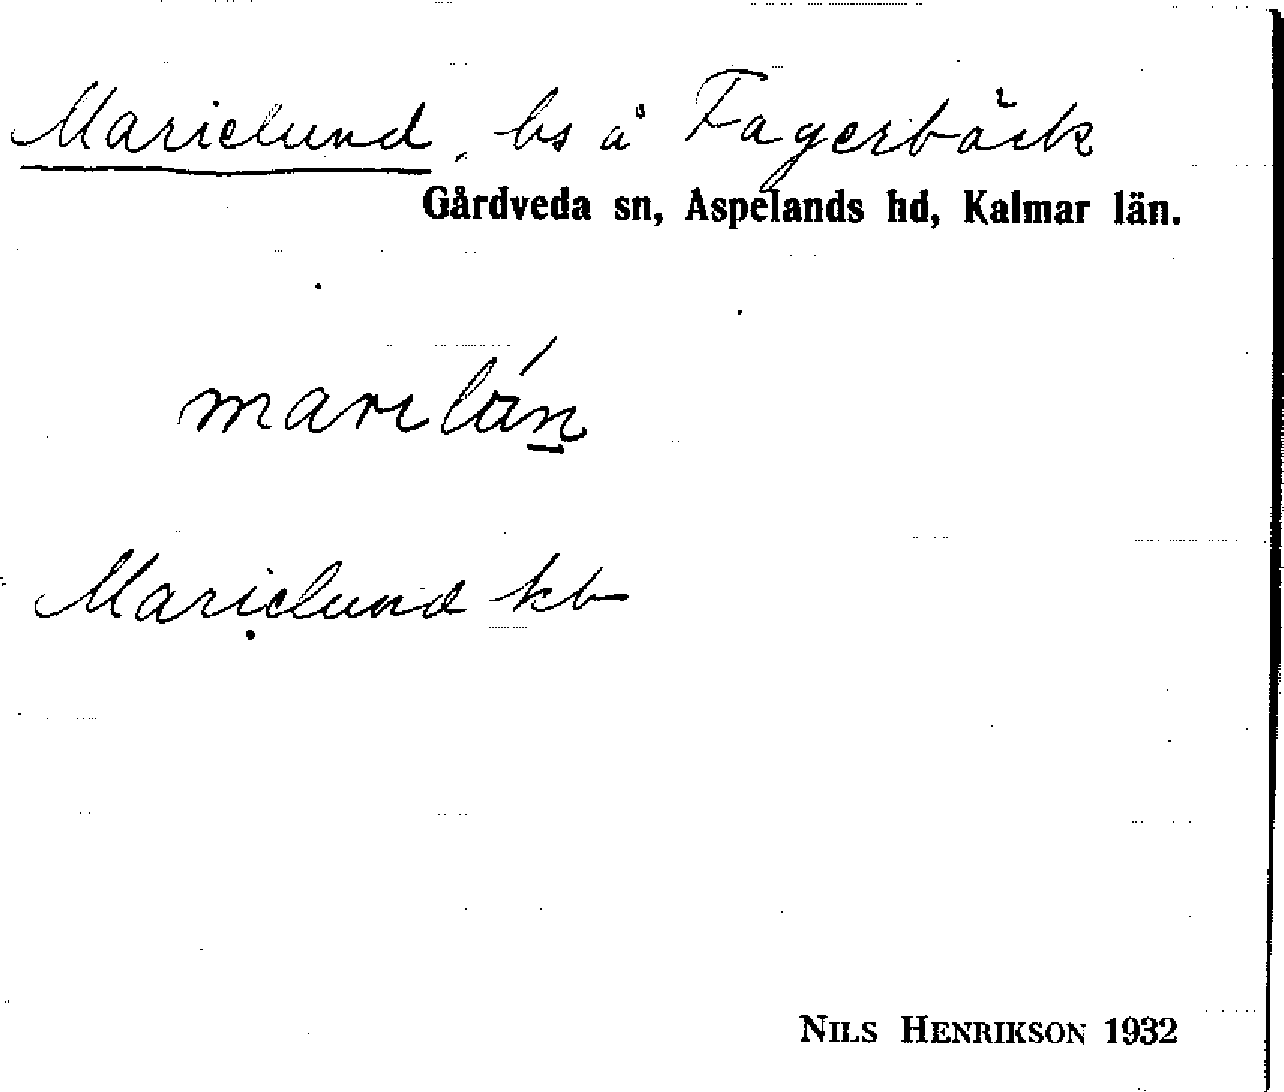 Marielund, bs å Fagerbäck
Gårdveda sn, Aspelands hd, Kalmar län.
marilán
Marielund kb
NILS HENRIKSON 1932